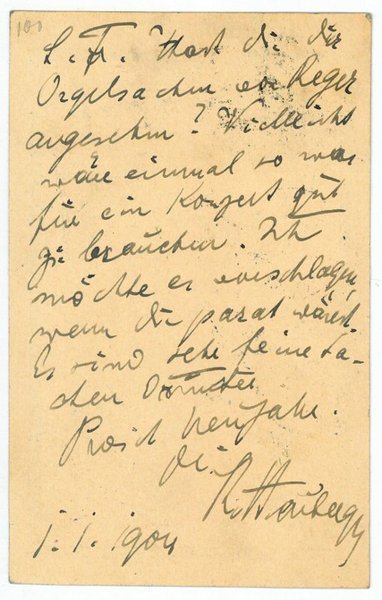 101
L. F. Hast du dir
Orgelsachen von Reger
angesehen? Vielleicht
wäre einmal so was
für ein Konzert gut
zu brauchen. Ich
möchte es vorschlagen,
wenn du parat wärest.
Es sind sehr feine Sa-
chen darunter
Prosit Neujahr.
Dein
R. Hornberg
1. 1. 1904